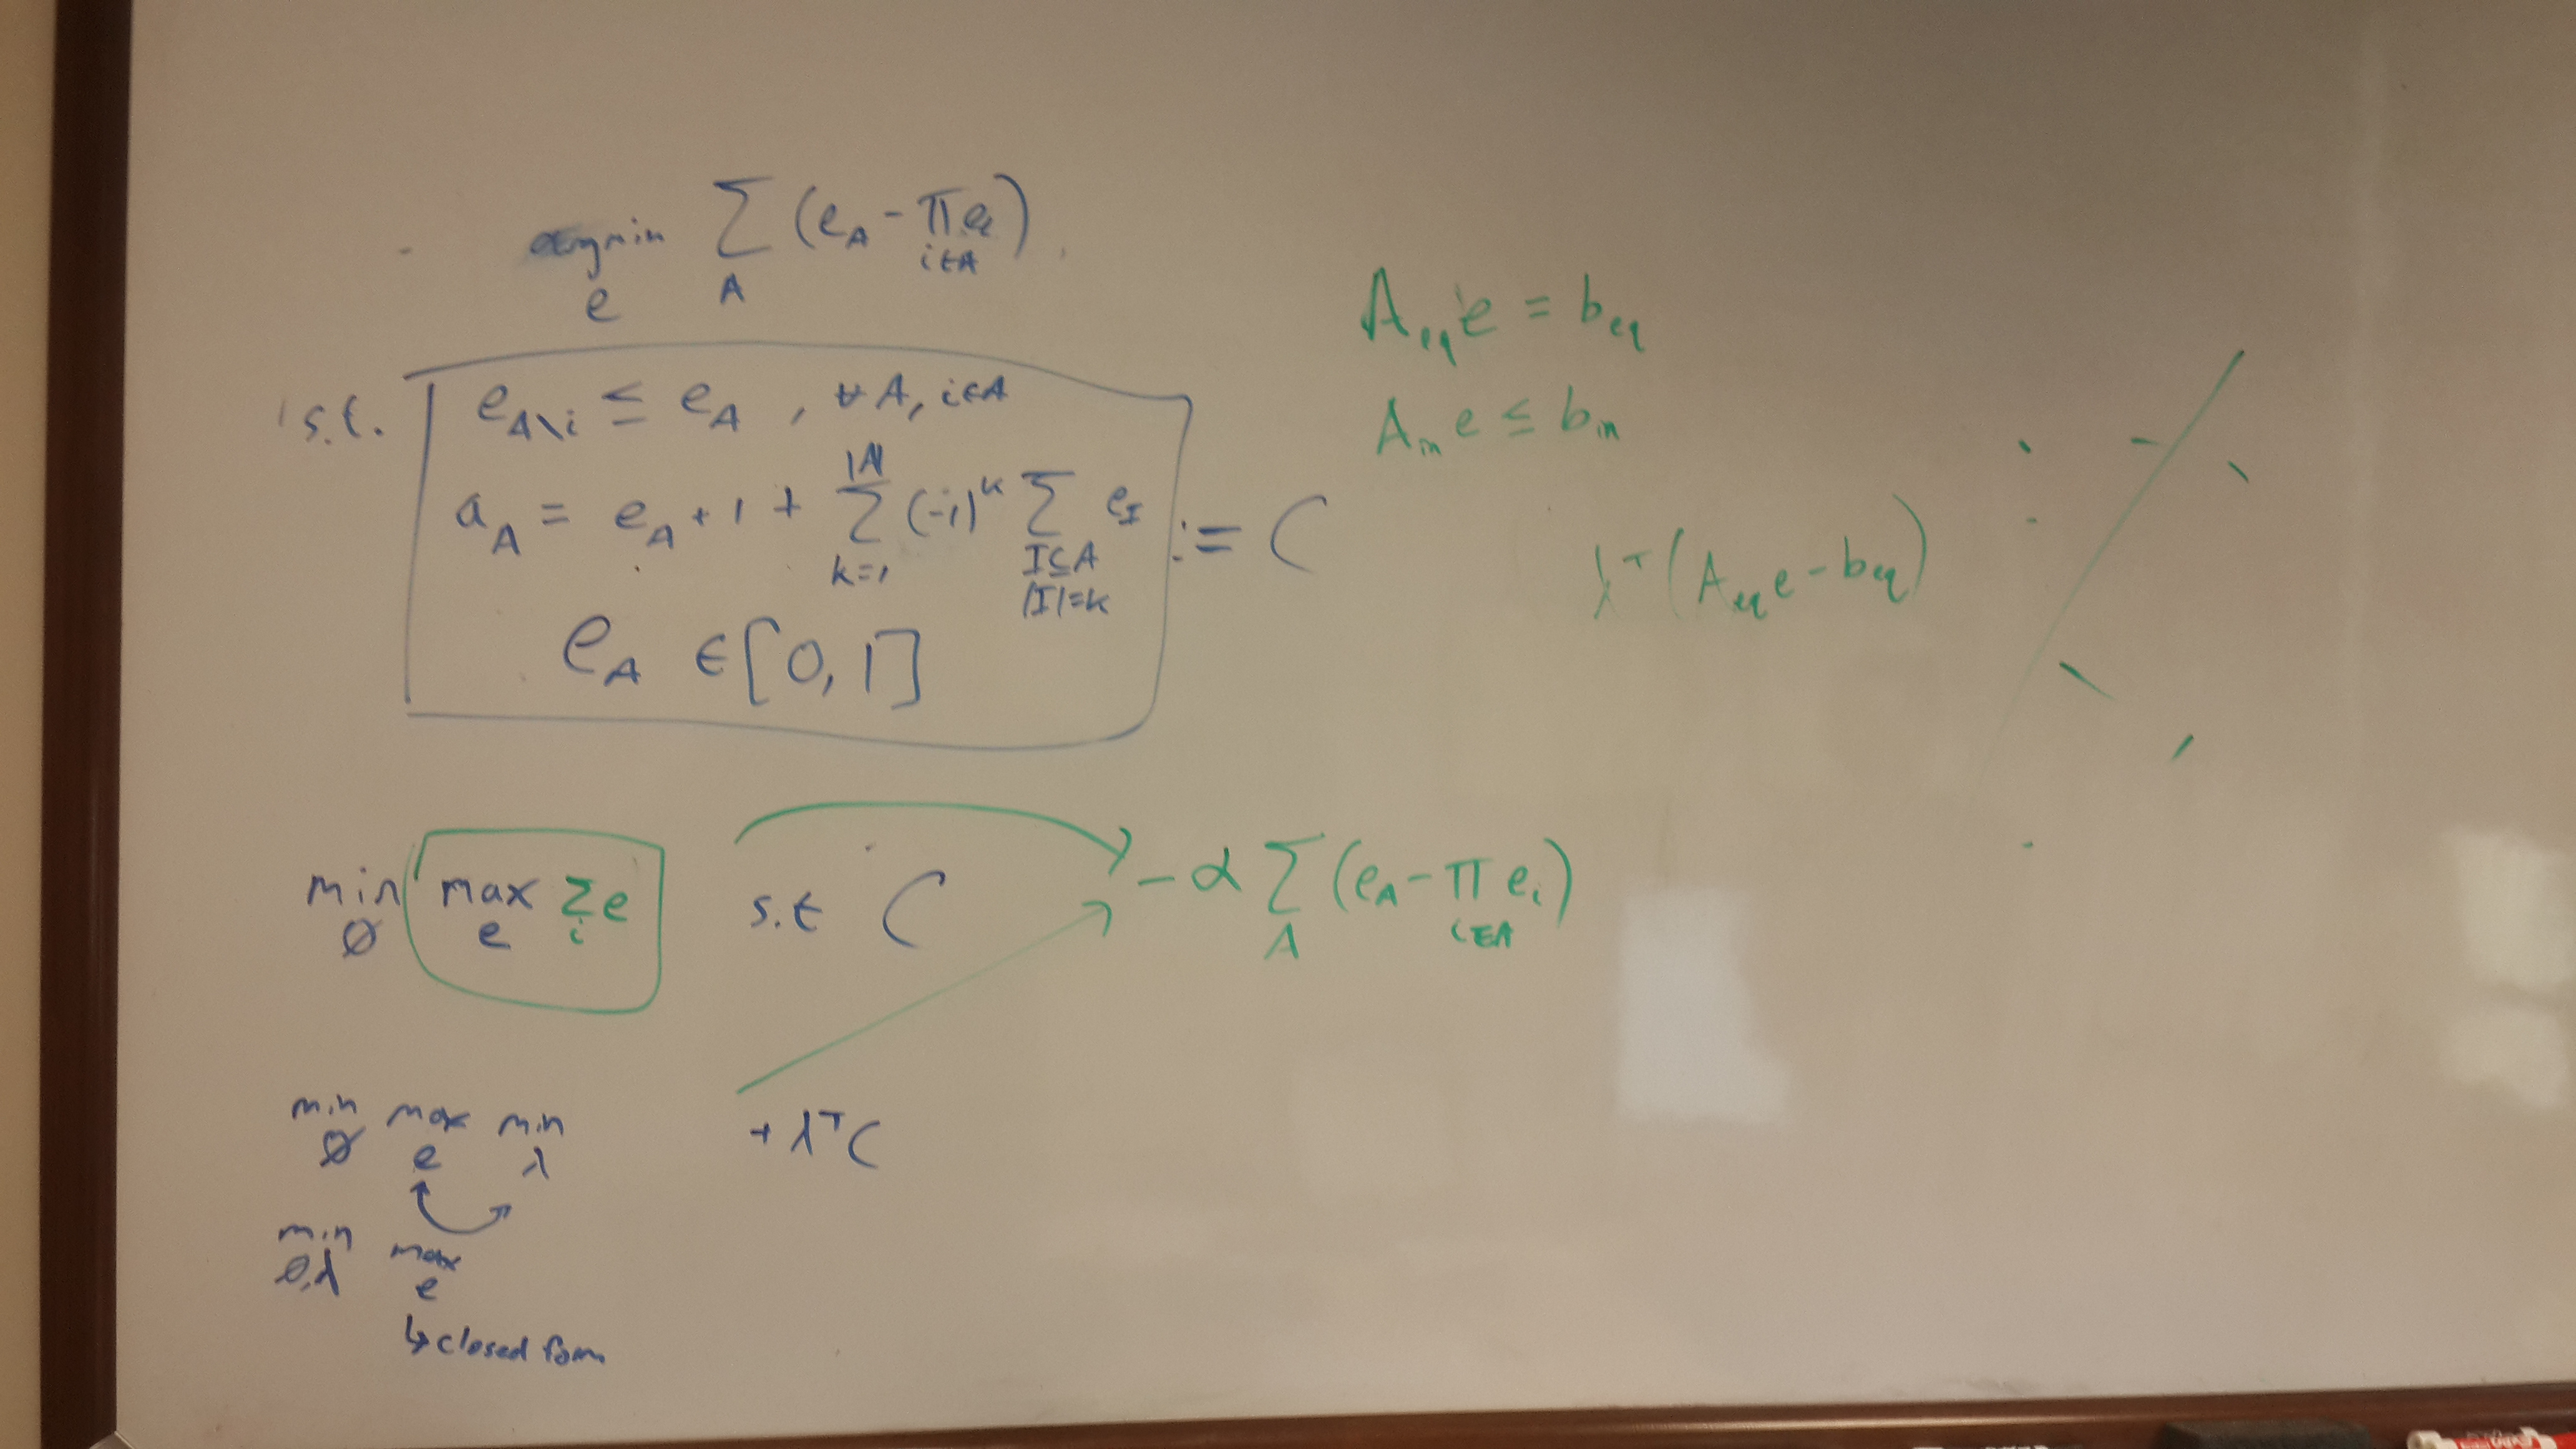 argmin_e Σ_A (e_A - Π_{i∈A} e_i)
s.t. e_{A\i} ≤ e_A , ∀A, i∈A
a_A = e_A + 1 + Σ_{k=1}^{|A|} (-1)^k Σ_{I⊆A |I|=k} e_I := C
e_A ∈ [0,1]
A_eq e = b_eq
A_in e ≤ b_in
λ^T (A_eq e - b_eq)
min_Ø max_e Σ_i e s.t C - α Σ_A (e_A - Π_{i∈A} e_i)
min_Ø max_e min_λ + λ^T C
min_{Ø,λ} max_e
↳ closed form